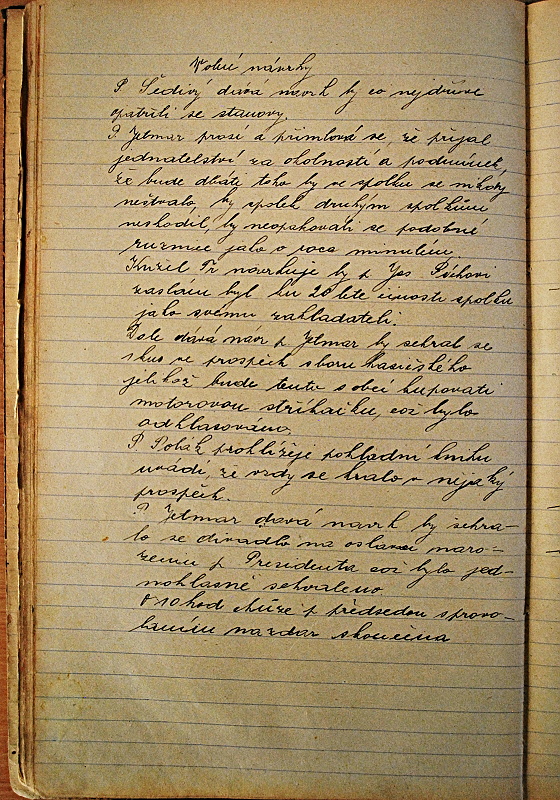 Volné návrhy
P. Šedivý dává návrh by co nejdříve
opatřili se stanovy.
P. Jetmar prosí a přimlouvá se, že přijal
jednatelství za okolností a podmínek,
že bude dbáti toho by ve spolku se nikdy
neštvalo, by spolek druhým spolkům
neškodil, by neopakovali se podobné
různice jako o roce minulém.
Kužel Fr navrhuje by p Jos
zaslán byl ku 20 leté činosti spolku
jako svému zakladateli.
Dále dává náv p Jetmar by sehrál se
kus ve prospěch sboru hasičského
jelikož bude tento s obcí kupovati
motorovou stříkačku, což bylo
odhlasováno.
P. prohlížeje pokladní knihu
uvádí, že vždy se hrálo v nějaký
prospěch.
P. Jetmar dává návrh by sehrá-
lo se divadlo na oslavu naro-
zenin p Presidenta což bylo jed-
nohlasně schváleno
schůze p předsedou s provo-
láním nazdar skončena